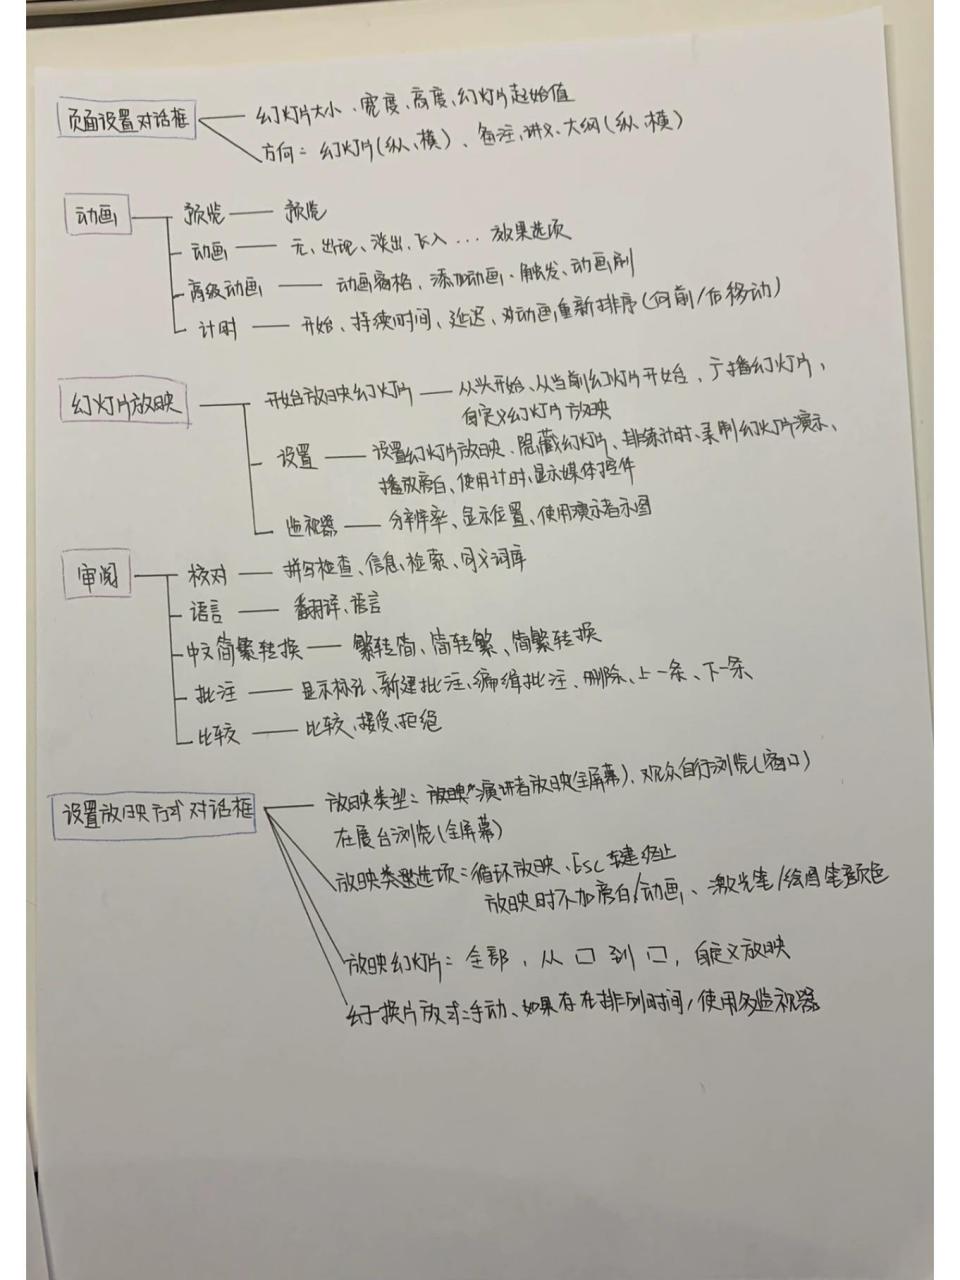 页面设置对话框
幻灯片大小、宽度、高度、幻灯片起始值
方向：幻灯片(纵、横)、备注、讲义、大纲(纵、横)
动画
预览 预览
动画 无、出现、淡出、飞入... 效果选项
高级动画 动画窗格、添加动画、触发、动画刷
计时 开始、持续时间、延迟、对动画重新排序(向前/后移动)
幻灯片放映
开始放映幻灯片 从头开始、从当前幻灯片开始、广播幻灯片、
自定义幻灯片放映
设置 设置幻灯片放映、隐藏幻灯片、排练计时、录制幻灯片演示、
播放旁白、使用计时、显示媒体控件
监视器 分辨率、显示位置、使用演示者示图
审阅
校对 拼写检查、信息、检索、同义词库
语言 翻译、语言
中文简繁转换 繁转简、简转繁、简繁转换
批注 显示标记、新建批注、编辑批注、删除、上一条、下一条
比较 比较、接受、拒绝
设置放映方式对话框
放映类型：放映 演讲者放映(全屏幕)、观众自行浏览(窗口)
在展台浏览(全屏幕)
放映类型选项：循环放映、Esc键终止
放映时不加旁白/动画、激光笔/绘图笔颜色
放映幻灯片：全部、从 口 到 口，自定义放映
换片放式：手动、如果存在排列时间，使用多监视器